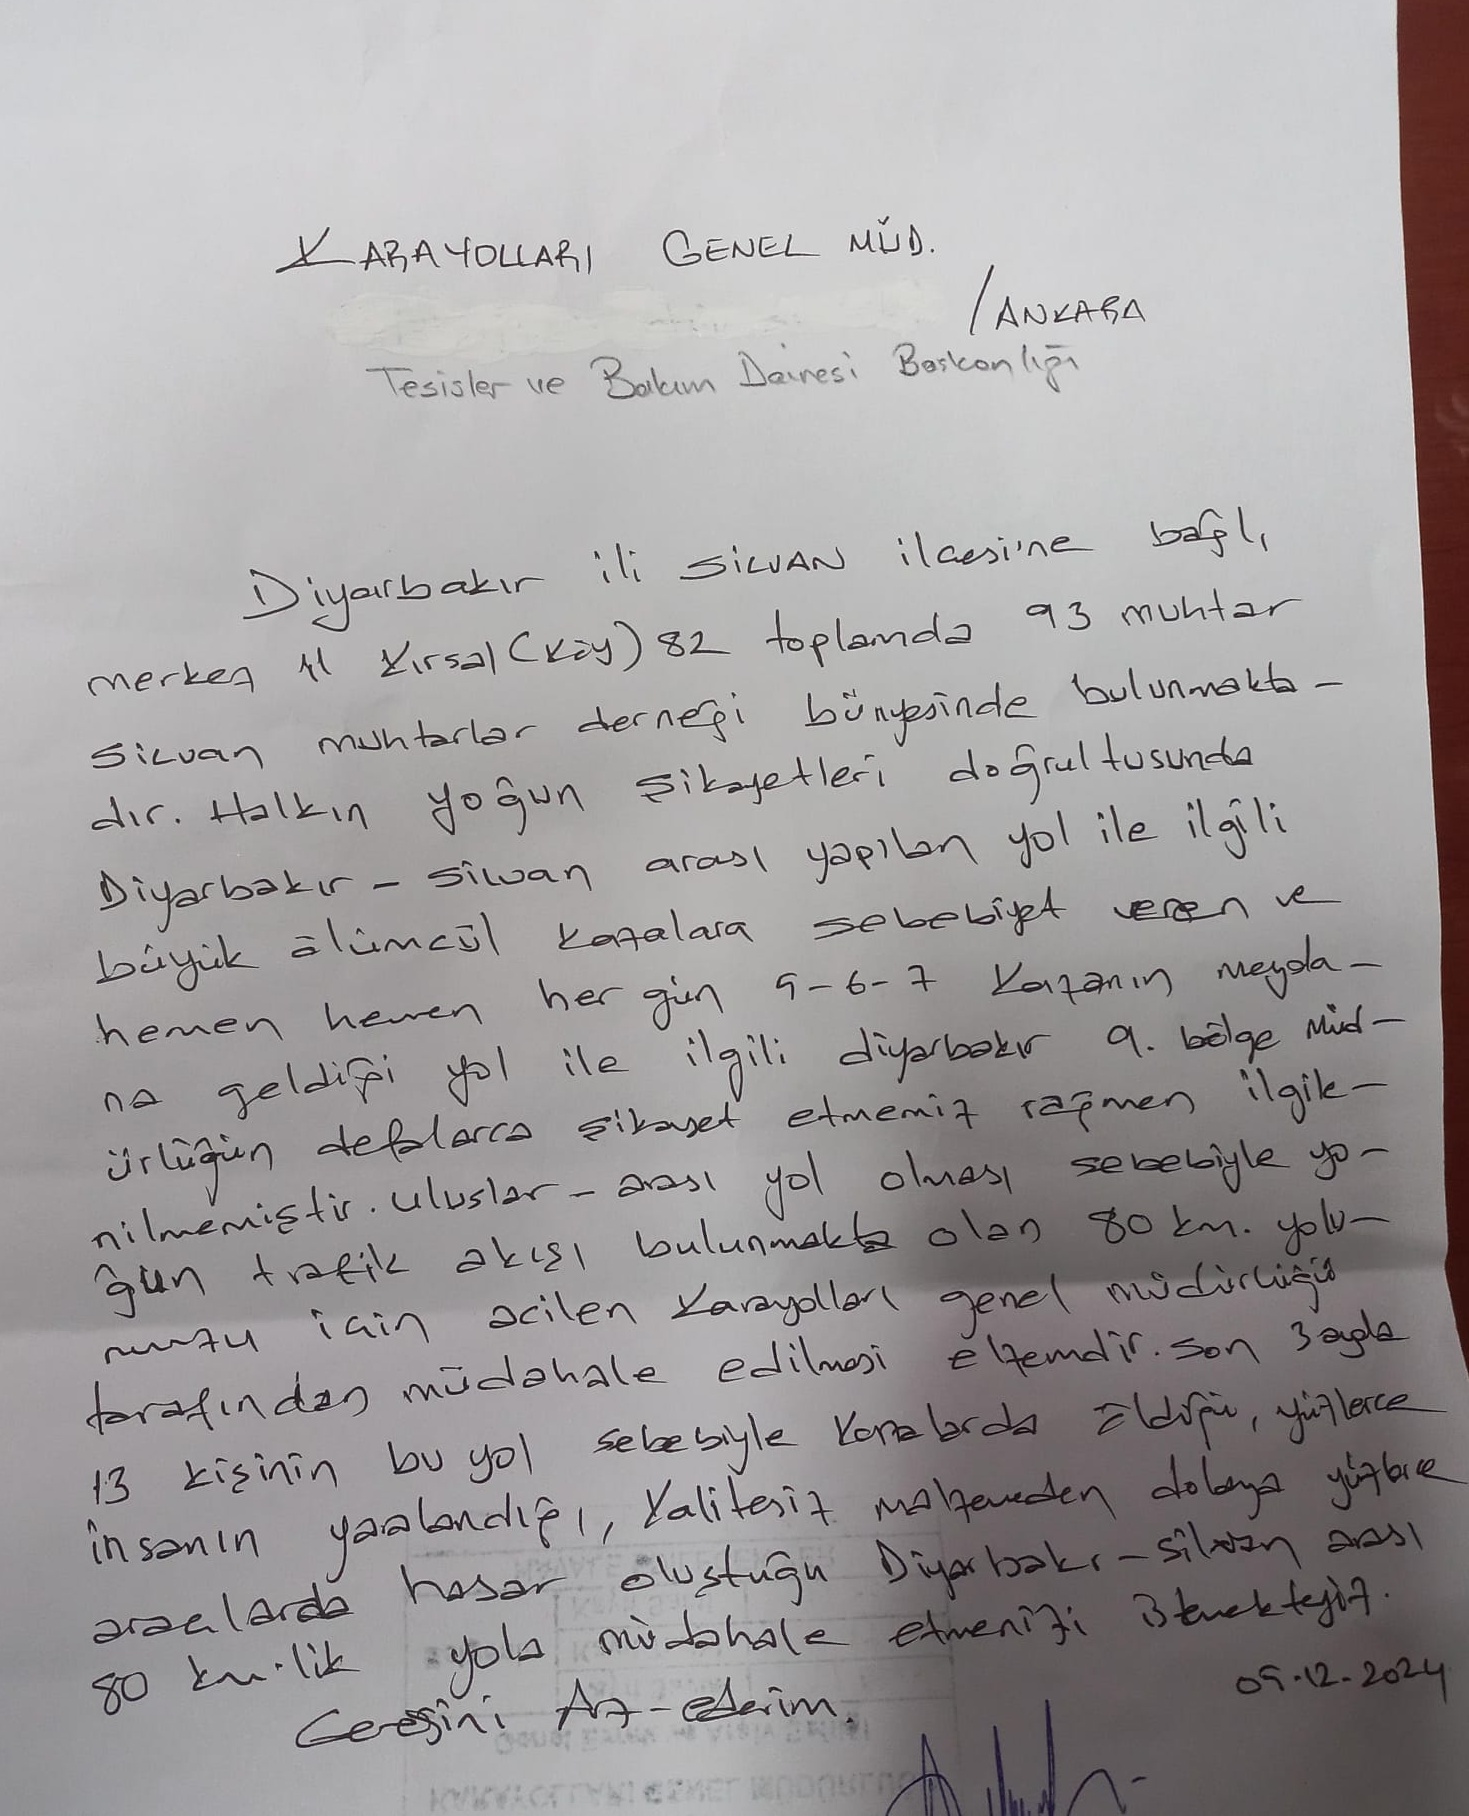 KARAYOLLARI GENEL MÜD.
/ANKARA
Tesisler ve Bakım Dairesi Başkanlığı
Diyarbakır ili SİLVAN ilçesi'ne bağlı
merkez 11 Kırsal (Köy) 82 toplamda 93 muhtar
Silvan muhtarlar derneği bünyesinde bulunmakta-
dır. Halkın yoğun şikayetleri doğrultusunda
Diyarbakır - Silvan arası yapılan yol ile ilgili
büyük ölümcül kazalara sebebiyet veren ve
hemen hemen her gün 5-6-7 kazanın meyda-
na geldiği yol ile ilgili diyarbakır 9. bölge Müd-
ürlüğün defalarca şikayet etmemiz rağmen ilgile-
nilmemiştir. uluslar-arası yol olması sebebiyle yo-
ğun trafik akışı bulunmakta olan 80 km. yolu-
muzu için acilen Karayolları genel müdürlüğü
tarafından müdahale edilmesi elzemdir. Son 3 ayda
13 kişinin bu yol sebebiyle kazalarda öldüğü, yüzlerce
insanın yaralandığı, Kalitesiz malzemeden dolayı yüzlerce
araçlarda hasar oluştuğu Diyarbakır - Silvan arası
80 km.lik yola müdahale etmenizi istemekteyiz.
Gereğini Arz-ederim.
05.12.2024